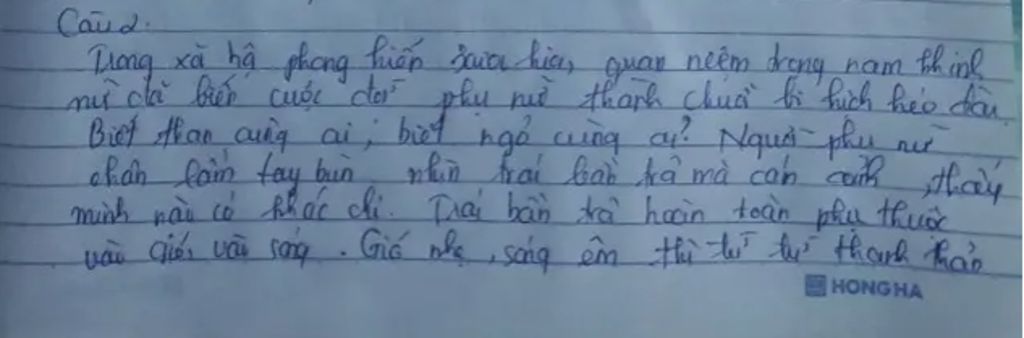 Câu 2.
Trong xã hộ phong kiến xưa kia, quan niệm trọng nam khinh
nữ đã biến cuộc đời phụ nữ thành chuỗi bi kịch kéo dài
Biết than cùng ai, biết ngỏ cùng ai? Người phụ nữ
chân lấm tay bùn nhìn trái bần trôi mà cám cảnh, thấy
mình nào có khác chi. Trái bần trôi hoàn toàn phụ thuộc
vào gió, vào sóng. Gió nhẹ, sóng êm thì từ từ thanh thản
HONG HA